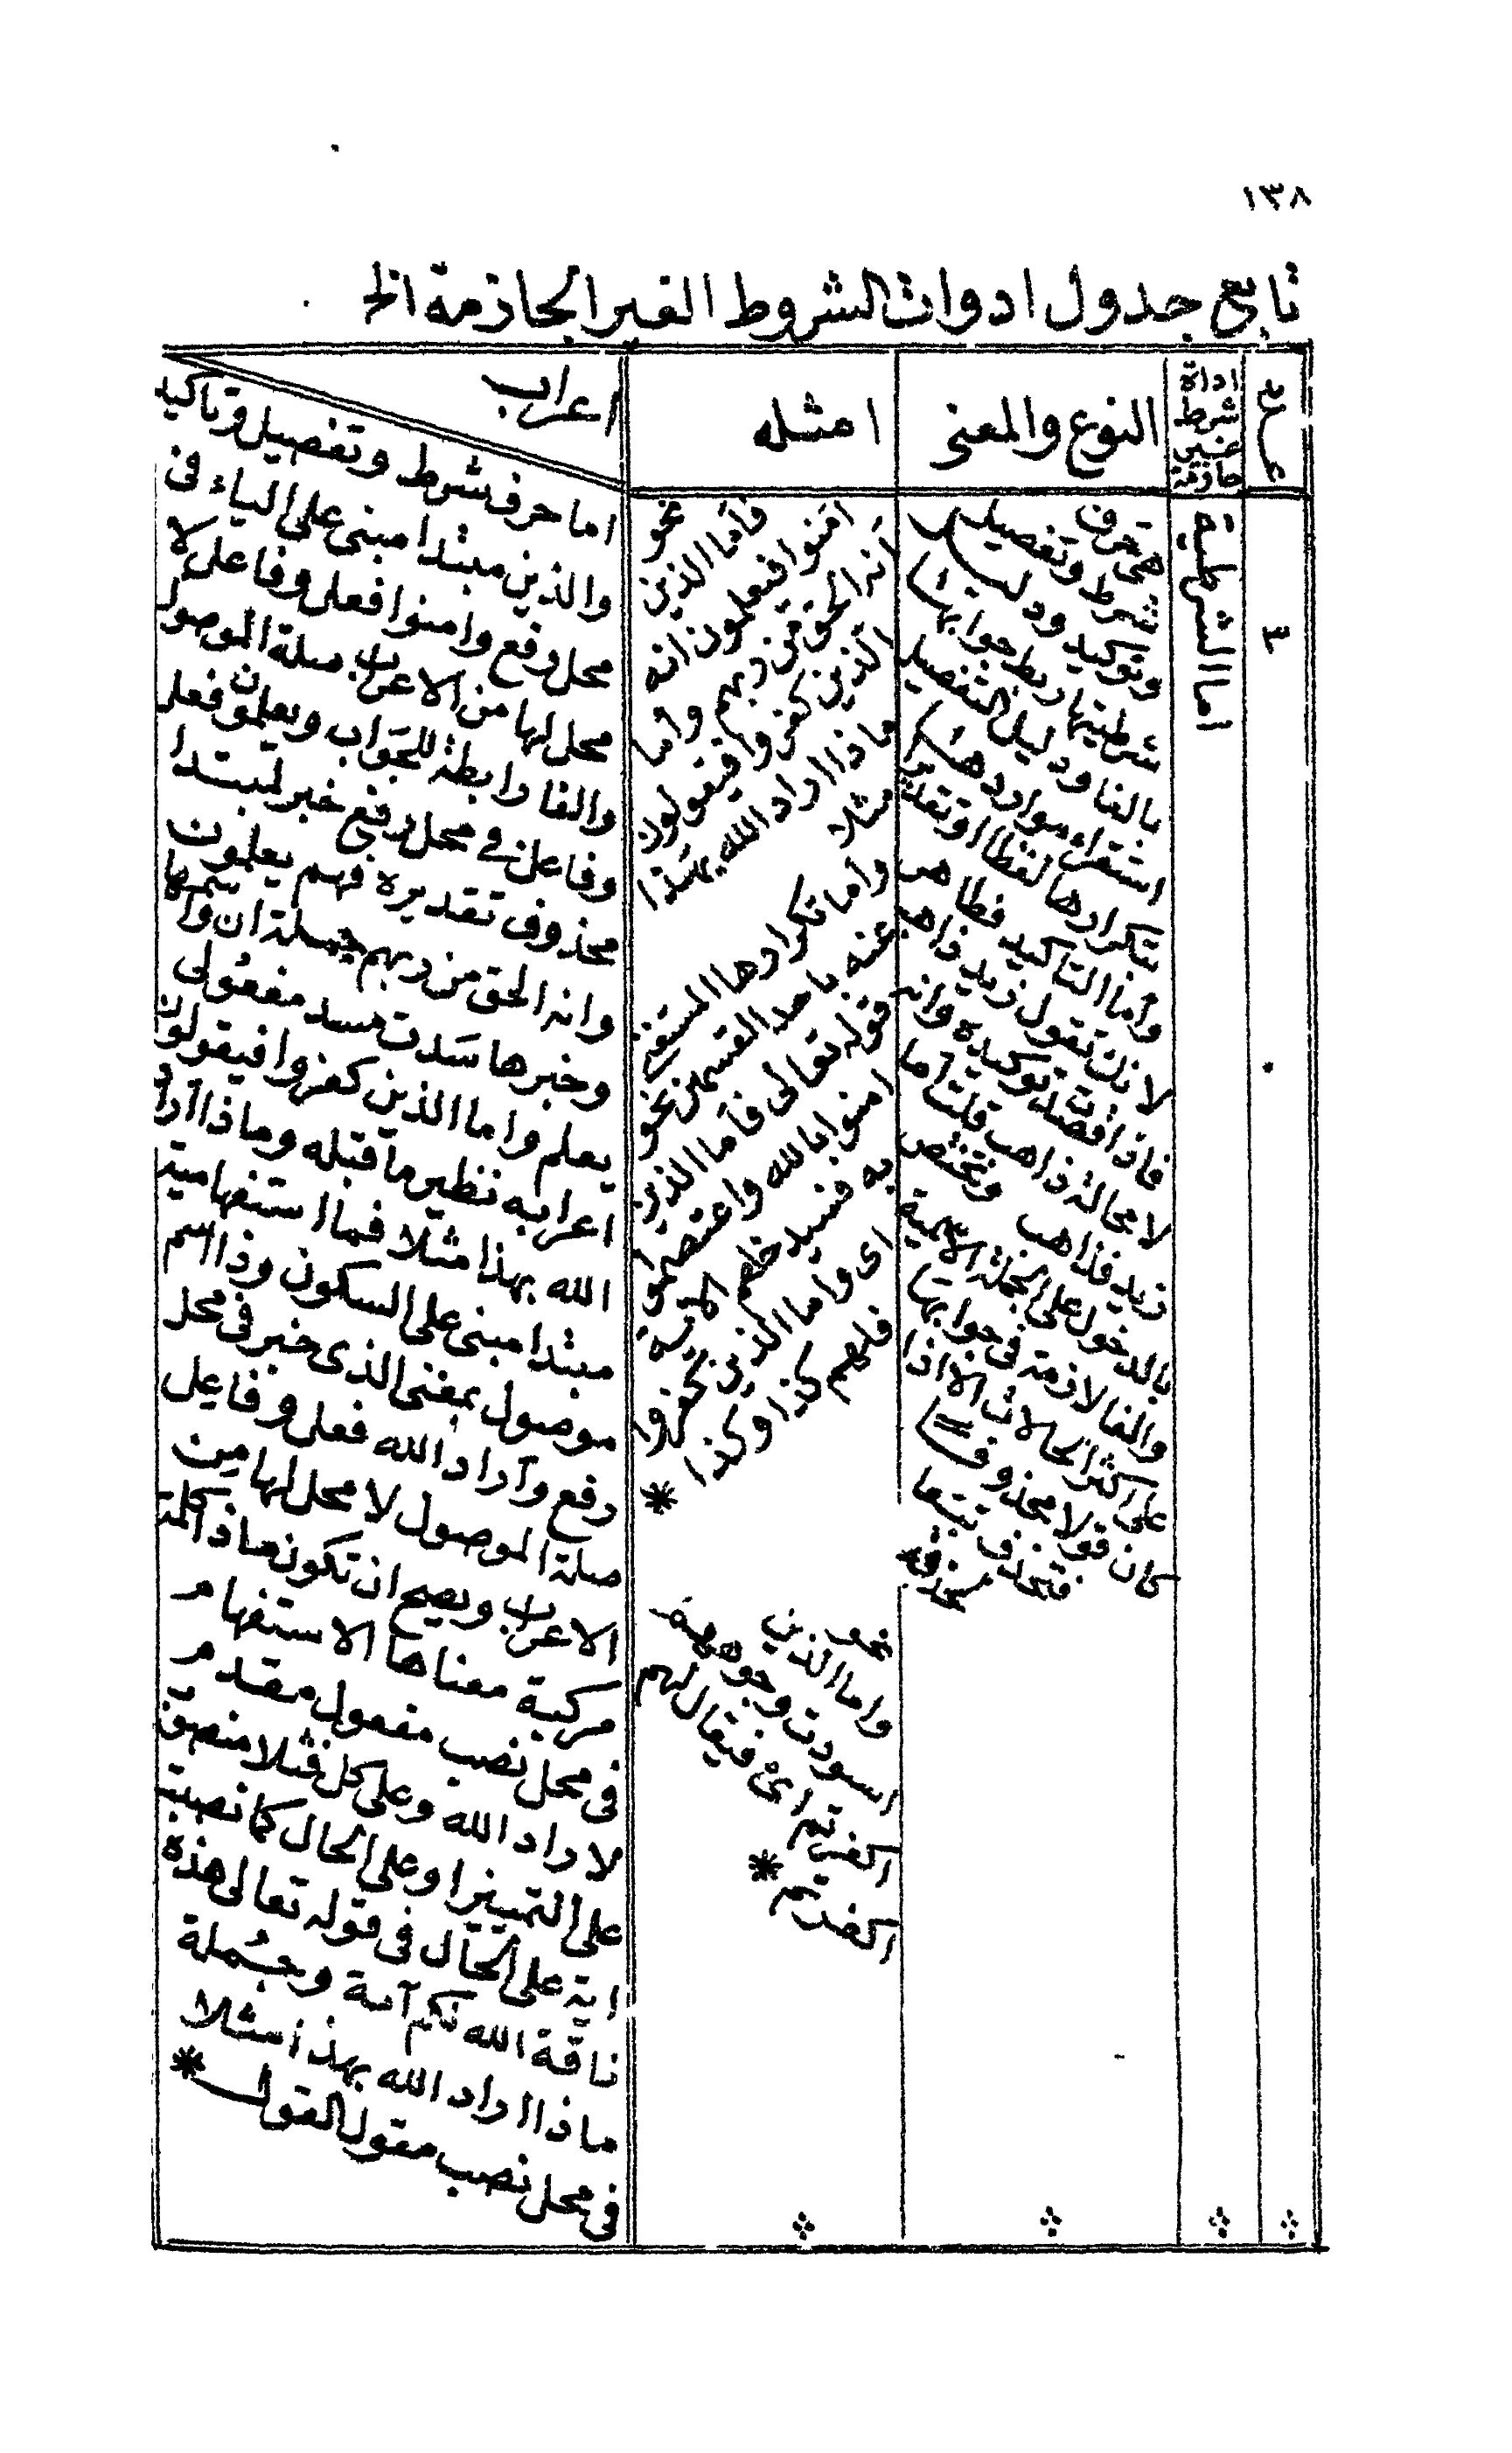 ١٣٨
تابع جدول ادوات الشروط الغير الجازمة الخ
عدد
اداة
شرط
غير
جازمة
النوع والمعنى
امثله
اعراب
٤
اما الشرطية
هى حرف
شرط وتفصيل
وتوكيد ودليل
شرطيتها ربط جوابها
بالفا ودليل التفصيل
استقراء مواردها
بتكرارها لفظا او تقديرا
واما التاكيد فظاهر
لانك تقول زيد ذاهب
فاذا قصدت توكيده وانه
لا محالة ذاهب قلت اما
زيد فذاهب وتختص
بالدخول على الجملة الاسمية
والفا لازمة فى جوابها
على اكثر الحالات الا اذا
كان قولا محذوفا
فتحذف تبعا
نحو
فأما الذين
آمنوا فيعلمون انه
أنه الحق من ربهم واما
الذين كفروا فيقولون
ماذا اراد الله بهذا
مثلا
واما تكرارها استغنى
عنه باحد القسمين نحو
قوله تعالى فأما الذين
امنوا بالله واعتصموا
به فسيدخلهم
اى واما الذين كفروا
فلهم كذا وكذا *
نحو
واما الذين
اسودت وجوههم
اكفرتم اى فيقال لهم
اكفرتم *
اما حرف شرط وتفصيل وتاكيد
والذين مبتدا مبنى على الياء فى
محل رفع وامنوا فعل وفاعل لا
محل لها من الاعراب صلة الموصول
والفا رابطة للجواب ويعلمون فعل
وفاعل فى محل رفع خبر لمبتدا
محذوف تقديره فهم يعلمون
وانه الحق من ربهم جملة ان واسمها
وخبرها سدت مسد مفعولى
يعلم واما الذين كفروا فيقولون
اعرابه نظير ما قبله وماذا آراد
الله بهذا مثلا فما استفهامية
مبتدا مبنى على السكون وذا اسم
موصول بمعنى الذى خبر فى محل
رفع وآراد الله فعل وفاعل
صلة الموصول لا محل لها من
الاعراب ويصح ان تكون ماذا كلمة
مركبة معناها الاستفهام
فى محل نصب مفعول مقدم
لاراد الله وعلى كل فمثلا منصوب
على التمييز او على الحال كما نصبت
اية على الحال فى قوله تعالى هذه
ناقة الله لكم آية وجملة
ماذا اراد الله بهذا مثلا
فى محل نصب مقول القول *